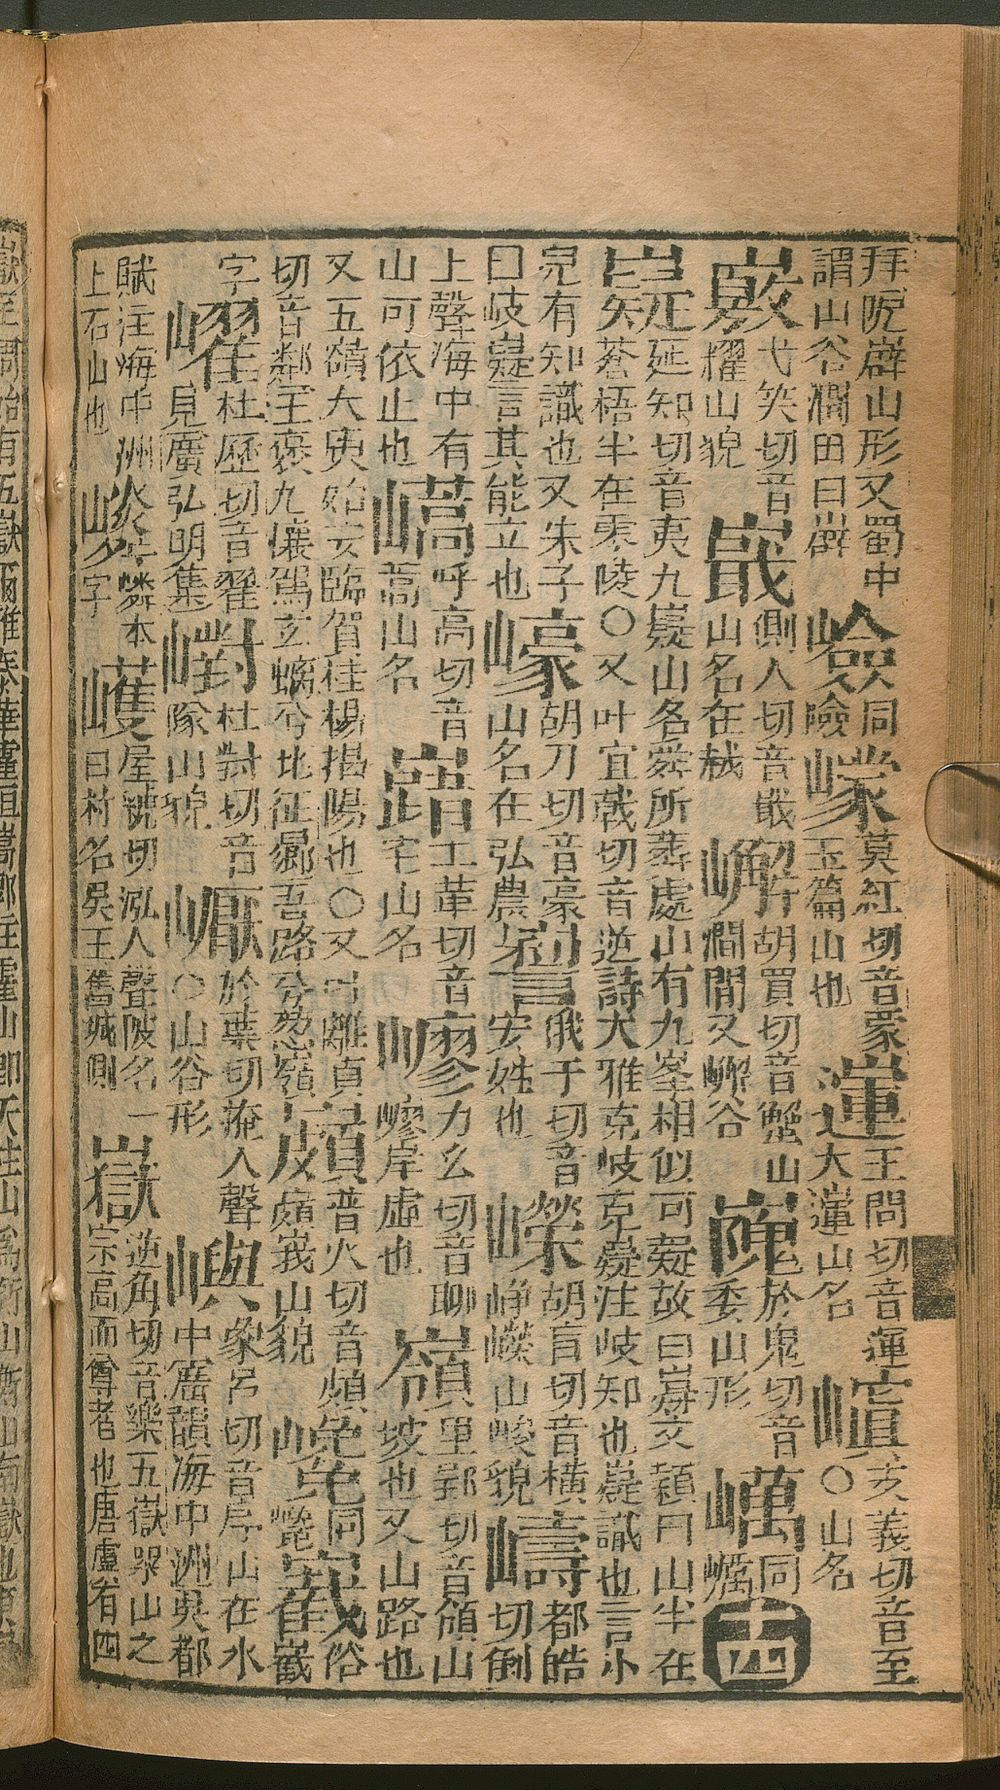 拜阮嶭山形又蜀中謂山谷澗田曰嶭 嶮同險 㠓莫紅切音蒙玉篇山也 王問切音運大山名 支義切音至〇山名
弋笑切音耀山貌 嶯側入切音戢山名在越 嶰胡買切音蟹山澗間又嶰谷 於鬼切音委山形 同巁 十四
嶷延知切音夷九嶷山名舜所葬處山有九峯相似可疑故曰嶷文頴曰山半在蒼梧半在零陵〇又叶宜戟切音逆詩大雅克岐克嶷注岐知也嶷識也言小
皃有知識也又朱子曰岐嶷言其能立也 胡刀切音豪山名在弘農 俄于切音安姓也 嶸胡盲切音橫崢嶸山峻貌 嶹都皓切倒
上聲海中有山可依止也 呼高切音蒿山名 工革切音宅山名 力么切音聊嵺岸虛也 嶺里郢切音領山坡也又山路也
又五嶺大庾始安臨賀桂楊揭陽也〇又叶離貞切音鄰王褒九懷駕玄螭兮北征曏吾路兮葱嶺 普火切音頗頗峩山貌 同 俗嶻
字 杜歷切音翟見廣弘明集 杜對切音隊山貌 於葉切掩入聲〇山谷形 嶼象呂切音序山在水中韻海中洲吳都
賦注海中洲上石山也 本字 屋虢切泓入聲陂名一曰村名吳王舊城側 嶽逆角切音樂五嶽眾山之宗高而尊者也唐虞有四